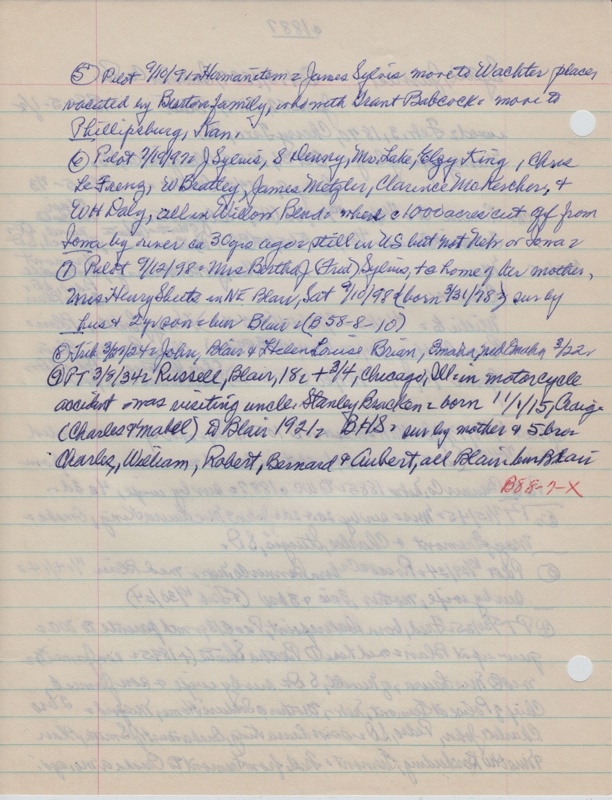 ⑤ Pilot 9/10/91 = Herman Stem = James Sylvis move to Wachter place,
vacated by Burton family, who with Grant Babcock = move to
Phillipsburg, Kan.
⑥ Pilot 7/19/97 = J Sylvis, S Denny, Mr. Lake, Elzy King, Chris
W Beatley, James Metzler, Clarence McKercher, &
WH Daly, all in Willow Bend = when 1000 acres cut off from
Iowa by river ca 30 yrs ago = still in US but not Neb or Iowa =
⑦ Pilot 9/12/98 = Mrs Bertha J (Fred) Sylvis, + @ home of her mother,
Mrs Henry Sheets in NE Blair, Sat 9/10/98 (born 3/31/78) sur by
hus & 2 yr son = bur Blair = (B 58-8-10)
⑧ Trib 3/27/24 = John, Blair & Helen Louise Brian, Omaha, md Omaha 3/22 =
⑨ PT 3/8/34 = Russell, Blair, 18, + 3/4, Chicago, Ill = in motorcycle
accident = was visiting uncle, Stanley Bracken = born 11/1/15, Craig =
(Charles & Mabel) to Blair 1921 = BHS = sur by mother & 5 bros
Charles, William, Robert, Bernard & Aubert, all Blair = bur Blair
B88-7-X